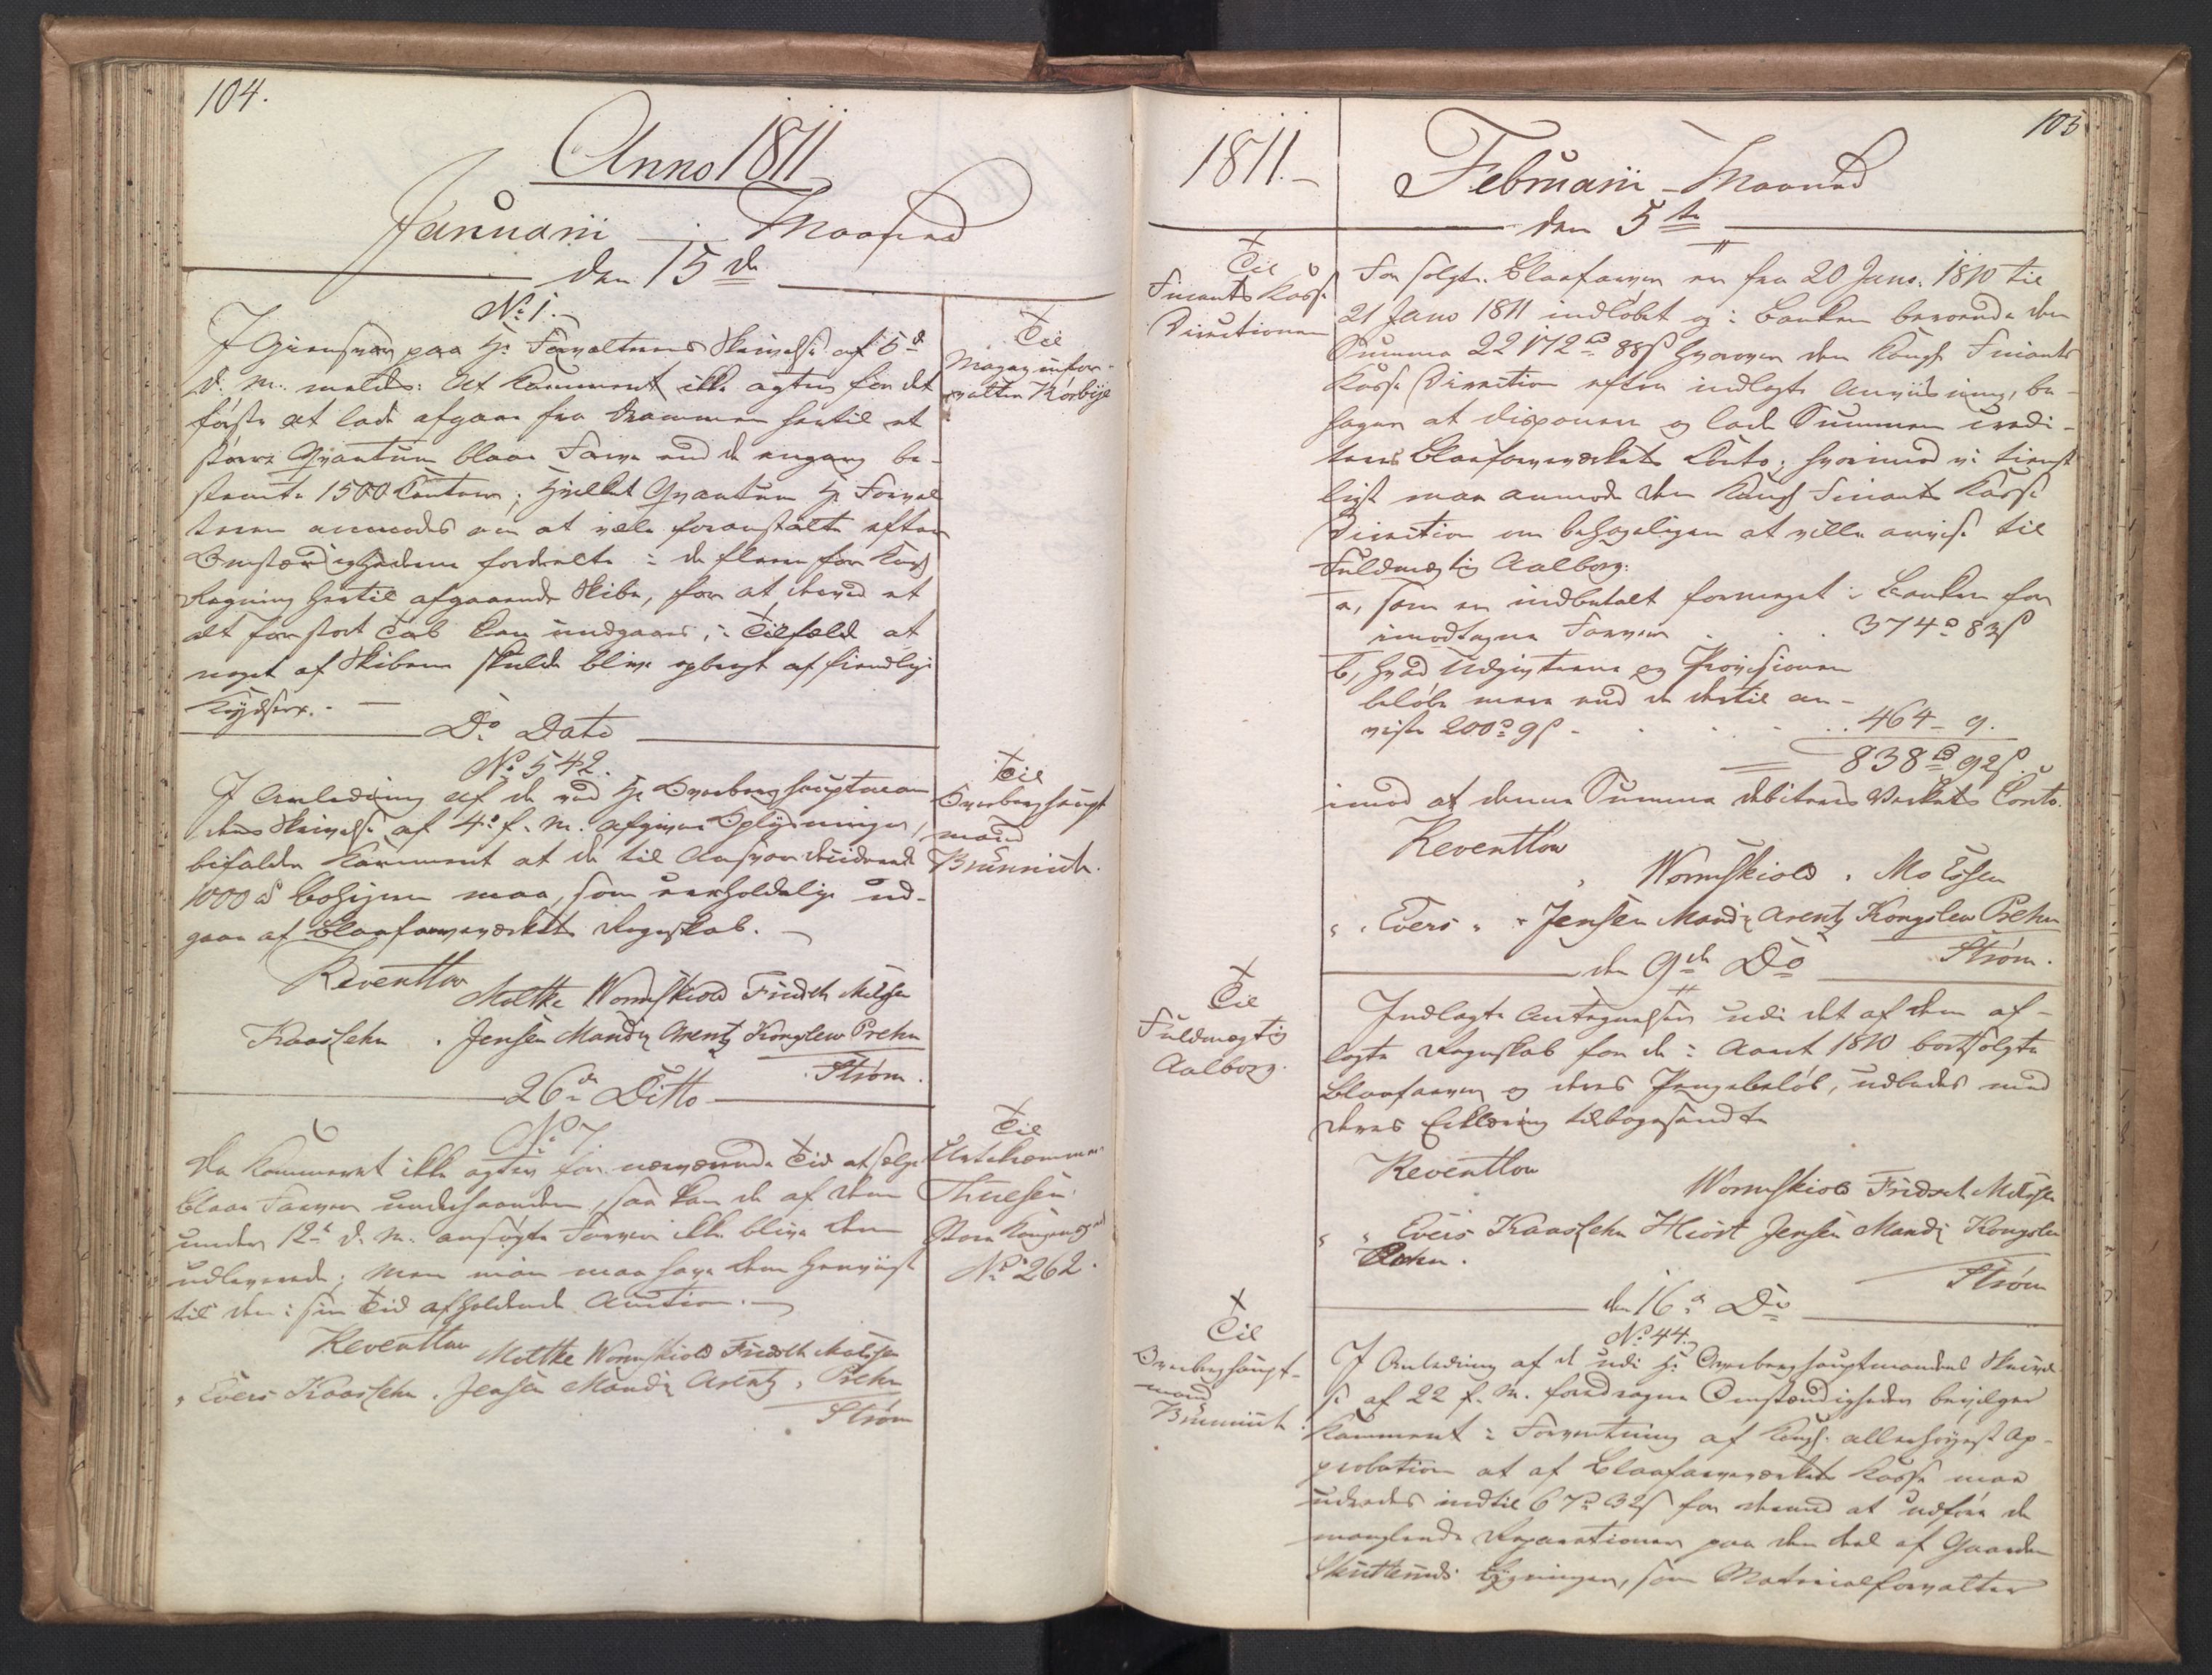 104.
Anno 1811
Januarii Maaned
den 15de
No 1.
I Giensvar paa Hr Forvalterens Skrivelse af 5te
d. M. meldes: At Kammeret ikke agter for det
første at lade afgaae fra Drammen hertil et
større Qvantum blaae Farve end de engang be-
stemte 1500 Centner; hvilket Qvantum Hr Forval
teren anmodes om at ville foranstalte efter
Omstændighederne fordeelte i de flere for Kongl
Regning hertil afgaaende Skibe, for at derved et
alt for stort Tab kan undgaaes, i Tilfælde at
noget af Skibene skulde blive opbragt af fiendlige
Krydsere. -
Til
Magazinfor-
valter Kørbye
Do Dato
No 542.
I Anledning af de ved Hr Overberghauptman
dens Skrivelse af 4de f. M. afgivne Oplysninger,
bifalder Kammeret at de til Ansvar deciderede
1000 bohziner maa, som uerholdelige ud-
gaae af Blaafarveværkets Regnskab. -
Til
Overberghaupt
mand
Brünnich.
Reventlow
Moltke Wormskiold Fridsch Meldgen
Kaas Lehn . Jensen Mandix Arentz Kongslew Prehn
Strøm.
26de Ditto
No 7.
Da Kammeret ikke agter for nærværende Tid at selge
Blaae Farver underhaanden, saa kan de af Dem
under 12te d. M. ansøgte Farver ikke blive Dem
udleverede; men man maa have Dem henviist
til den i sin Tid afholdende Auction. -
Til
Urtekræmmer
Thuesen
Store Kongensgad
No 262.
Reventlow
Moltke Wormskiold Fridsch Meldgen
" Evers Kaas Lehn . Jensen Mandix Arentz , Prehn
Strøm
105
1811. -
Februarii - Maaned
den 5te
Til
Finants Casse
Directionen
For solgte Blaafarver er fra 20 Janv. 1810 til
21 Janv 1811 indløbet og i Banken beroende den
Summa 22172 rd 88 s hvorover den Kongl. Finants
Casse Direction efter indlagte Anviisning, be-
hager at disponere og lade Summen credi-
teres Blaafarveværkets Conto; hvorimod vi tienst
ligst maa anmode den Kongl Finants Casse
Direction om behageligen at ville anvise til
Fuldmægtig Aalborg:
a, som er indbetalt formeget i Banken for
imodtagne Farver . . . 374 rd 83 s
b, hvad Udgivterne og Provisionen
beløbe mere end de dertil an-
viste 200 rd 9 s - . . . 464 - 9.
838 rd 92 s.
imod at denne Summa debiteres Værkets Conto.
Reventlow
Wormskiold .
" . Evers " " Jensen Mandix Arentz Kongslew Prehn
Strøm.
den 9de Do
Til
Fuldmægtig
Aalborg.
Indlagte Antegnelser udi det af Dem af-
lagte Regnskab for de i Aaret 1810 bortsolgte
Blaafarver og deres Pengebeløb, udbedes med
Deres Erklæring tilbagesendte
Reventlow
Wormskiold Fridsch Meldgen
" " Evers Kaas Lehn Hiort Jensen Mandix Kongslew
Prehn.
Strøm
den 16de Do
No 44.
Til
Overberghaupt-
mand
Brünnich.
I Anledning af de udi Hr Overberghauptmandens Skrivel
se af 22 f. M. foredragne Omstændigheder bevilger
Kammeret i Forventning af Kongl. allerhøyeste Ap-
probation at af Blaafarveværkets Casse maa
udredes indtil 67 rd 32 s for derved at udføre de
manglende Reparationer paa den Deel af Gaarden
Skutteruds Bygninger, som Materialforvalter